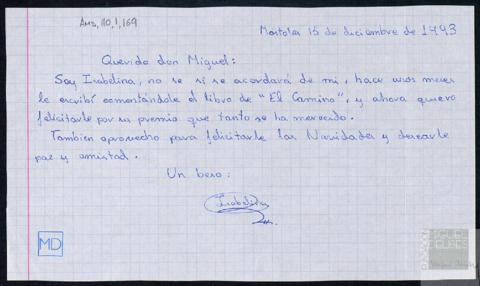 AMD, 110, 1, 169
Mostoles 15 de diciembre de 1993
Querido don Miguel:
Soy Isabelina, no se si se acordará de mi, hace unos meses
le escribí comentándole el libro de "El Camino", y ahora quiero
felicitarle por su premio que tanto se ha merecido.
Tambien aprovecho para felicitarle las Navidades y desearle
paz y amistad.
Un beso:
Isabelina
MD
MIGUEL
DELIBES